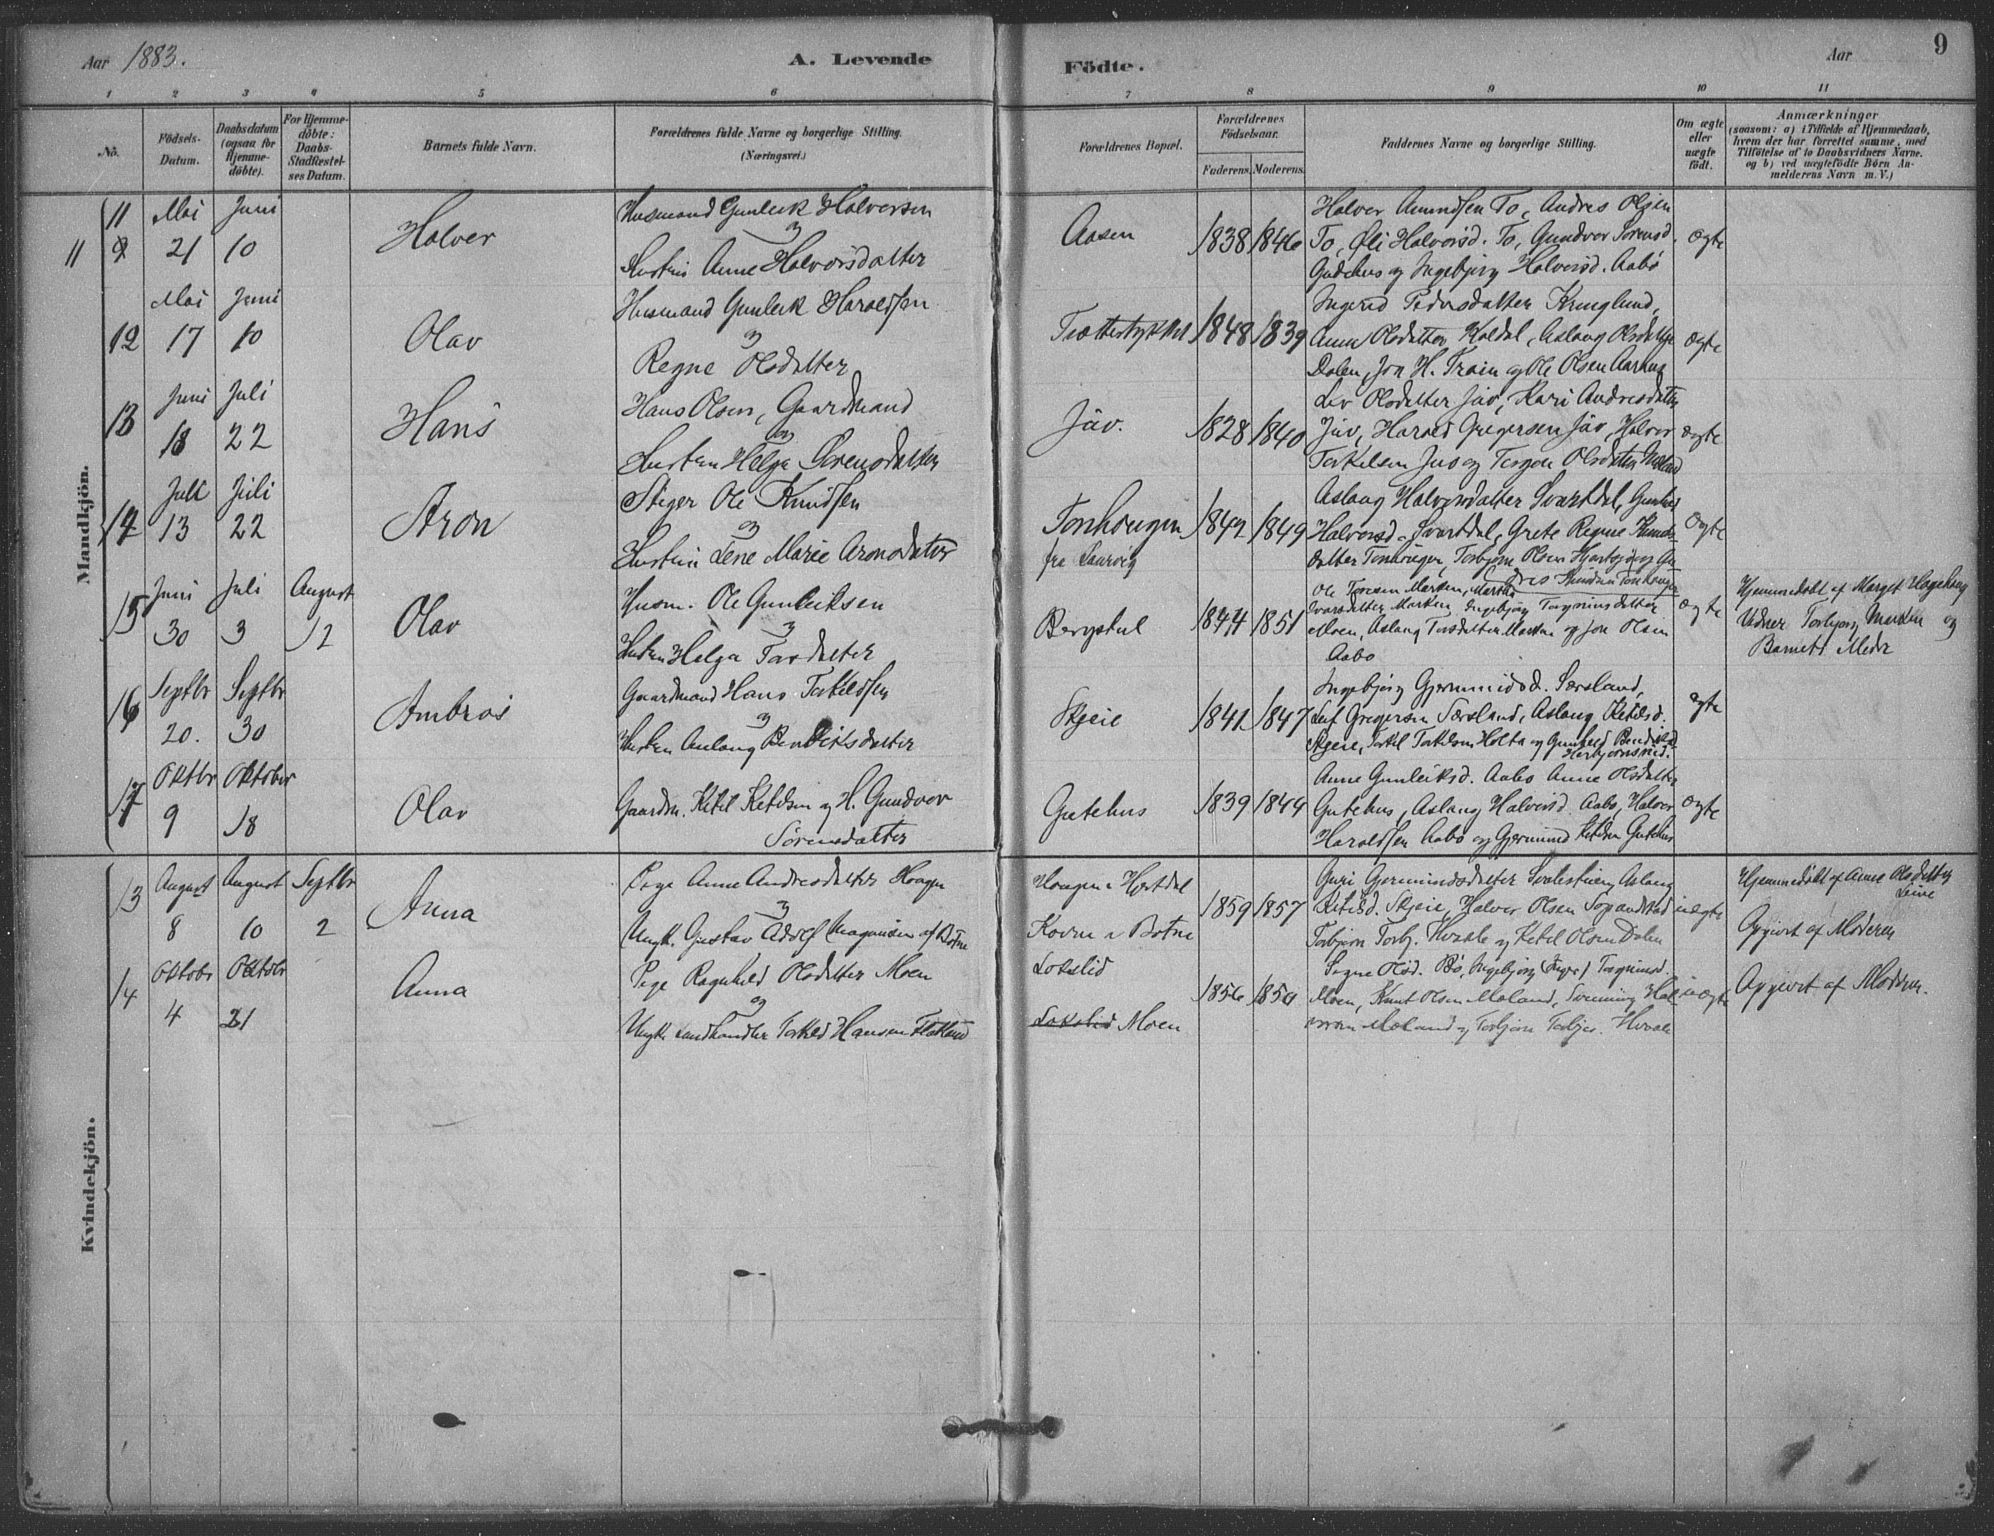 Aar 1883.
A. Levende
Födte.
Aar
9
1 2 3 4 5 6 7 8 9 10 11
No.
Födsels-
Datum.
Daabsdatum
(ogsaa for
Hjemme-
döbte).
For Hjemme-
döbte:
Daabs-
Stadfæstel-
ses Datum.
Barnets fulde Navn.
Forældrenes fulde Navne og borgerlige Stilling.
(Næringsvei.)
Forældrenes Bopæl.
Forældrenes
Födselsaar.
Faderens. Moderens.
Faddernes Navne og borgerlige Stilling.
Om ægte
eller
uægte
födt.
Anmærkninger
(saasom: a) i Tilfælde af Hjemmedaab,
hvem der har forrettet samme, med
Tilföielse af to Daabsvidners Navne.
og b) ved uægtefödte Börn An-
melderens Navn m. V.)
Mandkjön.
11
11 Mai 21 Juni 10
Halver
Husmand Gunleik Halversen
og
Hustru Anne Halvorsdatter
Aasen
1838 1846
Halver Amundsen To, Andres Olsen
To, Øli Halvorsd. To, Gundver Sorensd.
Gutehus og Ingebjørg Halversd. Aabø
ægte
12 Mai 17 Juni 10
Olav
Husmand Gunleik Haraldsen
og
Regne Olsdatter
1848 1839
Ingerid Pedersdatter Kringlund,
Anne Olsdatter Koldal, Aslaug Olsdatter
Dalen, Jon H. Træin og Ole Olsen Aarhus
ægte
13 Juni 18 Juli 22
Hans
Hans Olsen, Gaardmand
og
Hustru Helga Sørensdatter
Juv.
1828 1840
Liv Olsdatter Juv, Kari Andresdatter
Juv, Harald Gregersen Juv, Halver
Torkelsen Juv og Torjon Olsdatter
ægte
14 Juli 13 Juli 22
Aron
Stiger Ole Knudsen
og
Hustru Lene Marie Aronsdatter
Tonhougen
fra Laurvig
1842 1849
Aslaug Halversdatter Svartdal, Gunhild
Halvorsd. Svartdal, Grete Regine Knuds-
datter Tonhougen, Torbjørn Olsen
ægte
15 Juni 30 Juli 3 August 12
Olav
Husm. Ole Gunleiksen
og
Hustru Helga Tovdatter
Bergstul
1844 1851
Ole Marken,
Marken, Ingebjørg Torgrimsdatter
Moen, Aslaug Marken og Jon Olsen
Aabo
ægte
Hjemmedøbt af Margit Hagehaug
Vidner Torbjørg Marken og
Barnets Moder
16 Septbr 20. Septbr 30
Ambros
Gaardmand Hans Torkildsen
og
Hustru Aslaug Bendiksdatter
Skjeie
1841 1847
Ingebjørg Gjermundsd. Sørsland,
Leif Gregersen Sørsland, Aslaug Ketilsd.
Skjeie, Torkil Torkelsen Holta og Gunhild
ægte
17 Oktbr 9 Oktober 18
Olav
Gaardm. Ketil Ketilsen og H. Gundvor
Sørensdatter
Gutehus
1839 1844
Anne Gunleiksd. Aabo Anne Olsdatter
Gutehus, Aslaug Halversd. Aabo, Halver
Haraldsen Aabo og Gjermund Ketilsen Gutehus
ægte
Kvindekjön.
13 August 8 August 10 Septbr 2
Anna
Pige Anne Andresdatter Haugen
og
Ungk. Gustav Adolf Magnusen af Botne
Haugen i Hjertdal
Kovne i Botne
1859 1857
Guri Gjermundsdatter Svalestuen, Aslaug
Ketilsd. Skjeie, Halver Olsen
Torbjørn Torbj. Hvaale og Ketil Olsen Dalen
uægte
Hjemmedøbt af Anne Olsdatter
Opgivet af Moderen
14 Oktobr 4 Oktobr 21
Anna
Pige Ragnhild Olsdatter Moen
og
Ungk. Landhandler Torkel Hansen Flatland
Lokslid
Lokslid Moen
1856 1850
Signe Olsd. Bø, Ingebjørg (Inger) Torgrimsd.
Moen, Knut Olsen Moland, Svenning Hal-
Moland og Torbjørn Torbjør. Hvaale
uægte
Opgivet af Moderen.